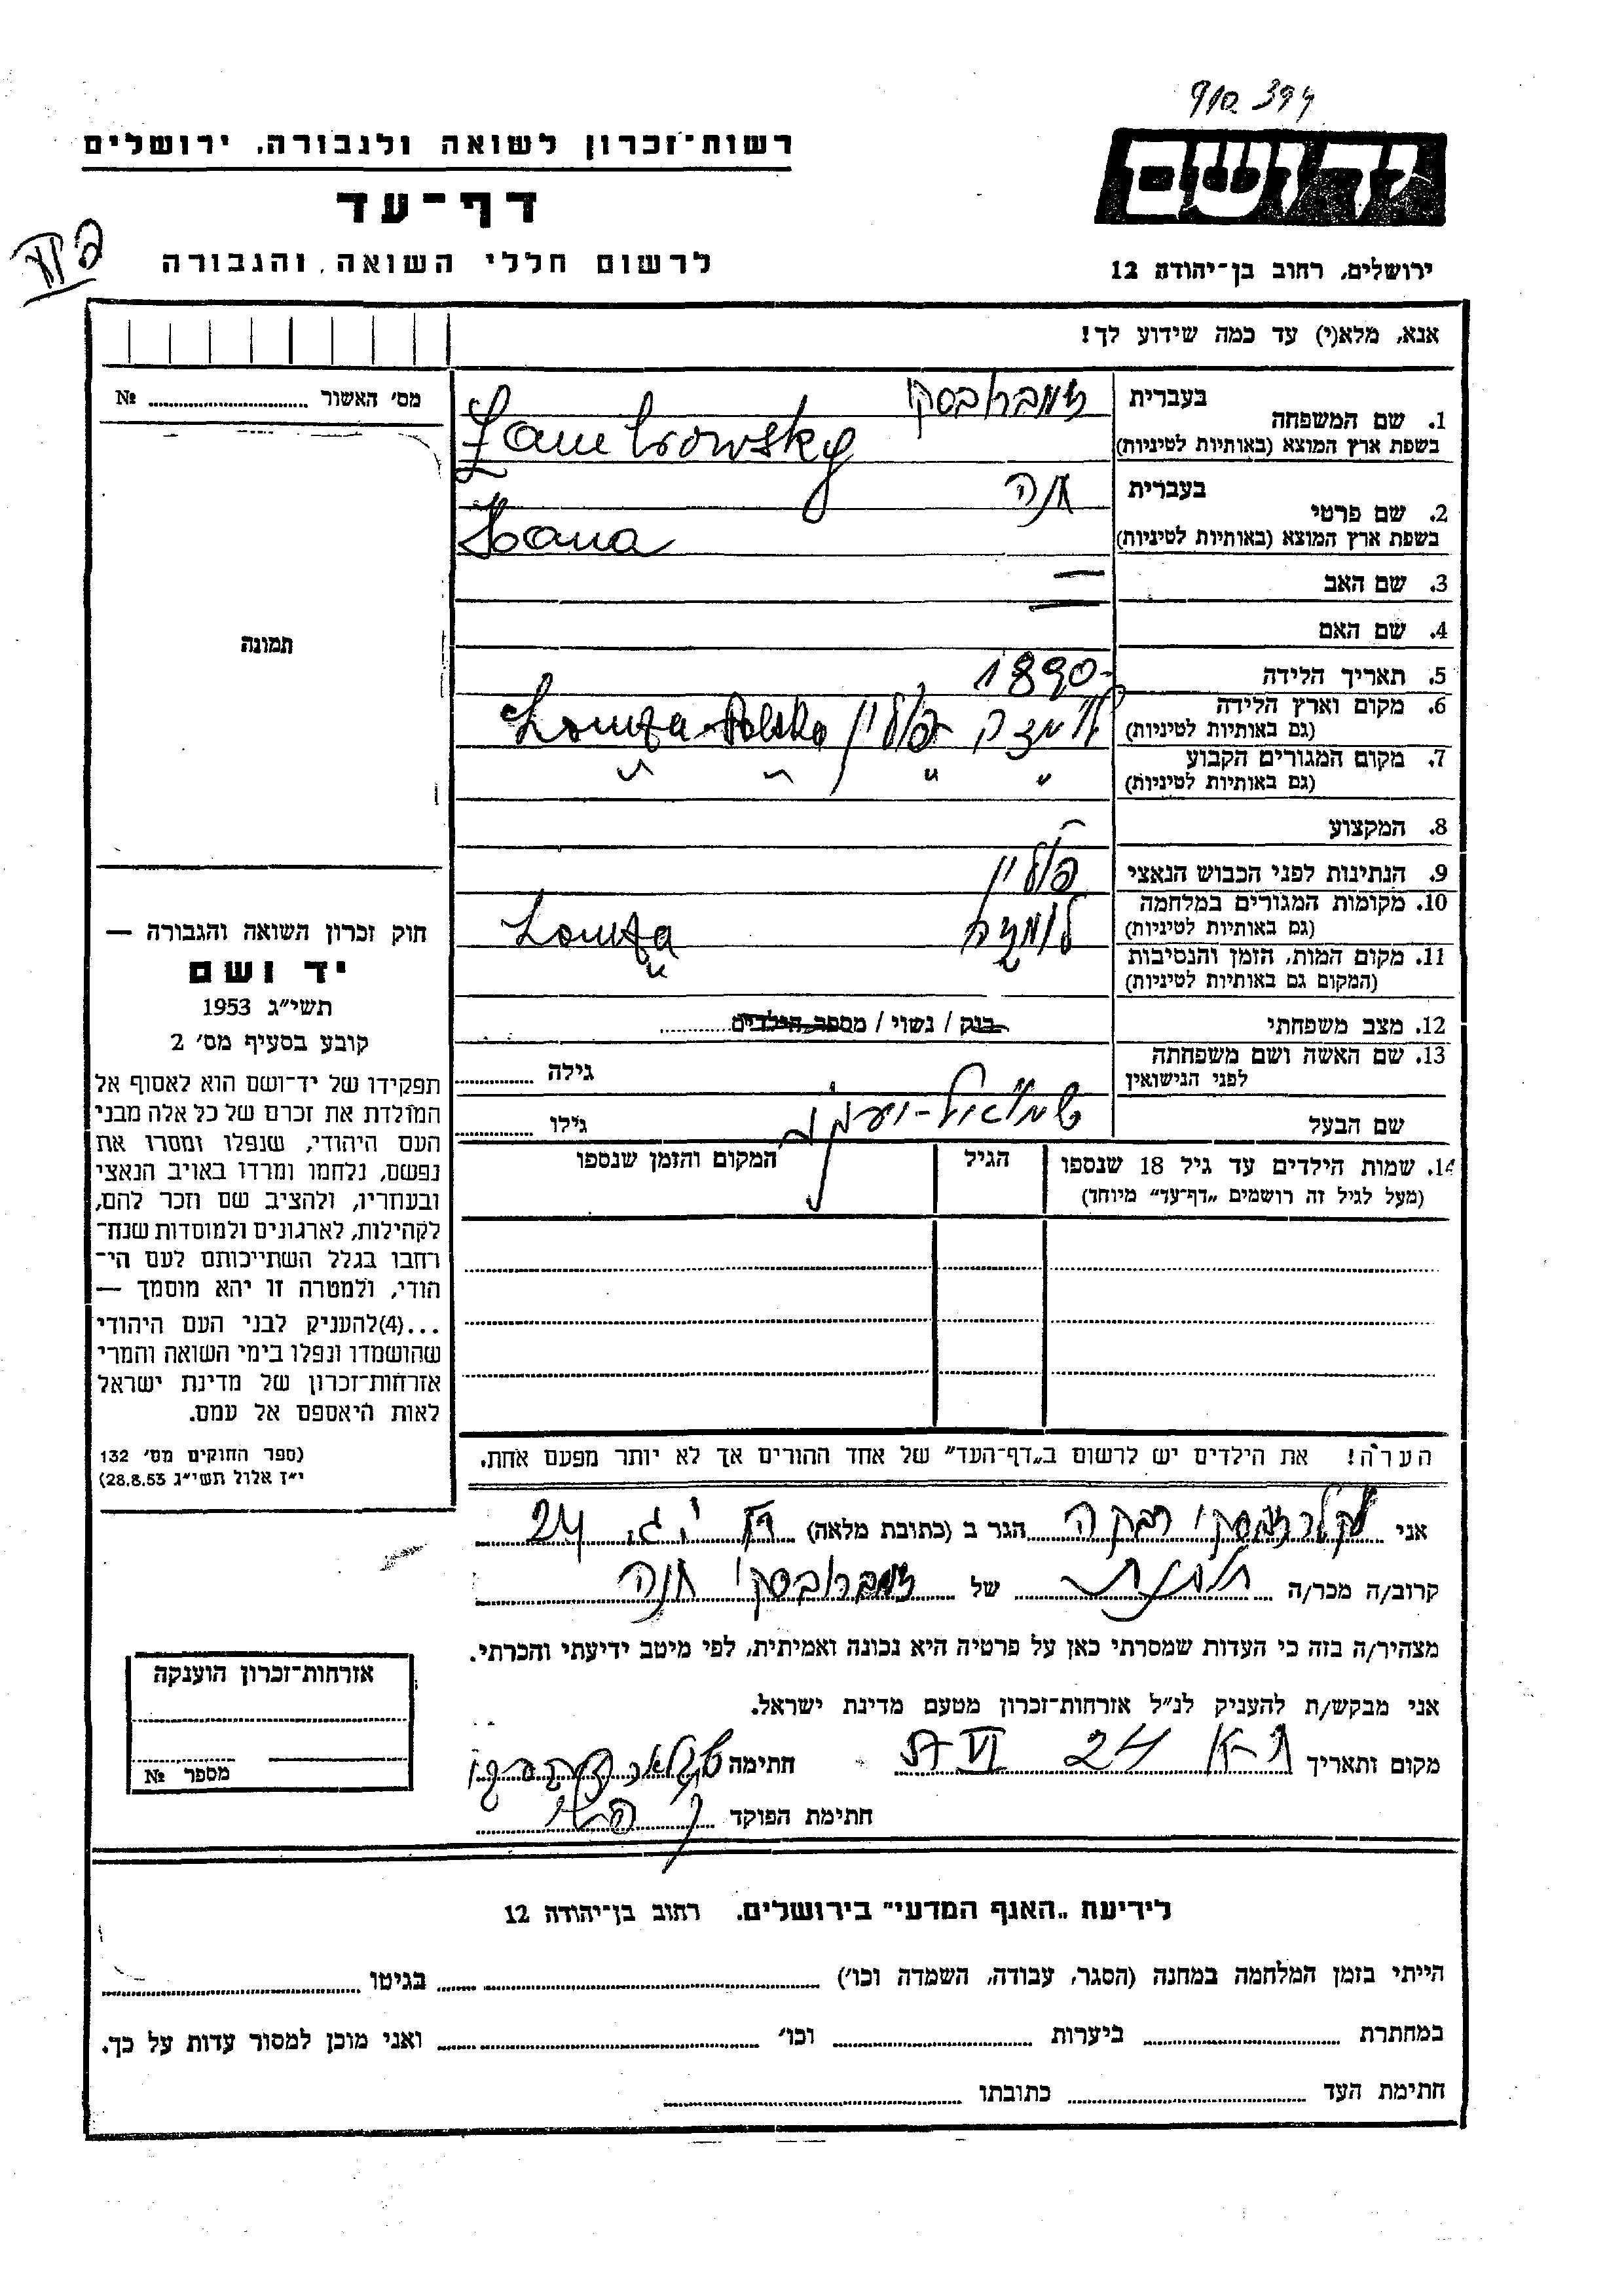 910 394
יד ושם
ירושלים, רחוב בן־יהודה 12
רשות־זכרון לשואה ולגבורה, ירושלים
דף־עד
לרשום חללי השואה והגבורה
אנא, מלא(י) עד כמה שידוע לך!
מס׳ האשור № ........
תמונה
בעברית זמברובסקי
1. שם המשפחה
בשפת ארץ המוצא (באותיות לטיניות) Zambrowsky
בעברית חנה
2. שם פרטי
בשפת ארץ המוצא (באותיות לטיניות) Hana
3. שם האב —
4. שם האם —
5. תאריך הלידה 1890
6. מקום וארץ הלידה לומזה פולין Łomża-Polska
(גם באותיות לטיניות)
7. מקום המגורים הקבוע " " " "
(גם באותיות לטיניות)
8. המקצוע
9. הנתינות לפני הכבוש הנאצי פולין
10. מקומות המגורים במלחמה לומזה Łomża
(גם באותיות לטיניות)
11. מקום המות, הזמן והנסיבות "
(המקום גם באותיות לטיניות)
12. מצב משפחתי רווק / נשוי / מספר הילדים
13. שם האשה ושם משפחתה גילה
לפני הנישואין
שם הבעל שמואל-יעקב גילו
14. שמות הילדים עד גיל 18 שנספו הגיל המקום והזמן שנספו
(מעל לגיל זה רושמים „דף־עד״ מיוחד)
הערה! את הילדים יש לרשום ב„דף־העד״ של אחד ההורים אך לא יותר מפעם אחת.
חוק זכרון השואה והגבורה —
יד ושם
תשי״ג 1953
קובע בסעיף מס׳ 2
תפקידו של יד־ושם הוא לאסוף אל
המולדת את זכרם של כל אלה מבני
העם היהודי, שנפלו ומסרו את
נפשם, נלחמו ומרדו באויב הנאצי
ובעוזריו, ולהציב שם וזכר להם,
לקהילות, לארגונים ולמוסדות שנח־
רבו בגלל השתייכותם לעם הי־
הודי, ולמטרה זו יהא מוסמך —
...(4)להעניק לבני העם היהודי
שהושמדו ונפלו בימי השואה והמרי
אזרחות־זכרון של מדינת ישראל
לאות היאספם אל עמם.
(ספר החוקים מס׳ 132
י״ז אלול תשי״ג 28.8.53)
אני רבקה הגר ב (כתובת מלאה) 24
קרוב/ה מכר/ה של זמברובסקי חנה
מצהיר/ה בזה כי העדות שמסרתי כאן על פרטיה היא נכונה ואמיתית, לפי מיטב ידיעתי והכרתי.
אני מבקש/ת להעניק לנ״ל אזרחות־זכרון מטעם מדינת ישראל.
מקום ותאריך ת-א 24 VI חתימה
חתימת הפוקד
אזרחות־זכרון הוענקה
מספר №
לידיעת „האגף המדעי״ בירושלים. רחוב בן־יהודה 12
הייתי בזמן המלחמה במחנה (הסגר, עבודה, השמדה וכו׳) בגיטו
במחתרת ביערות וכו׳ ואני מוכן למסור עדות על כך.
חתימת העד כתובתו